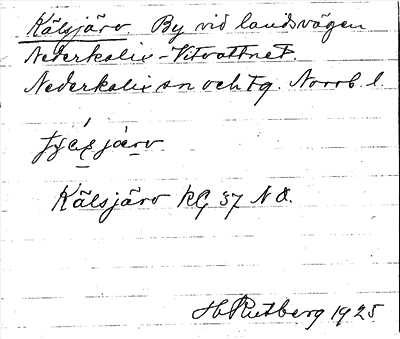 Kälsjärv. By vid landsvägen
Nederkalix - Vitvattnet.
Nederkalix sn och tg. Norrb. l.
Kälsjärv kG 37 NO.
H Rutberg 1925